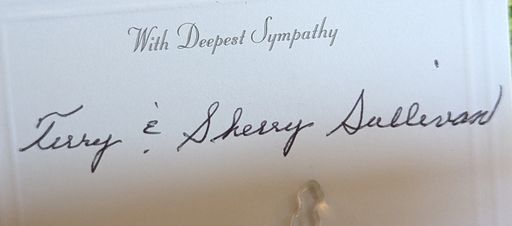 With Deepest Sympathy
Terry & Sherry Sullivan